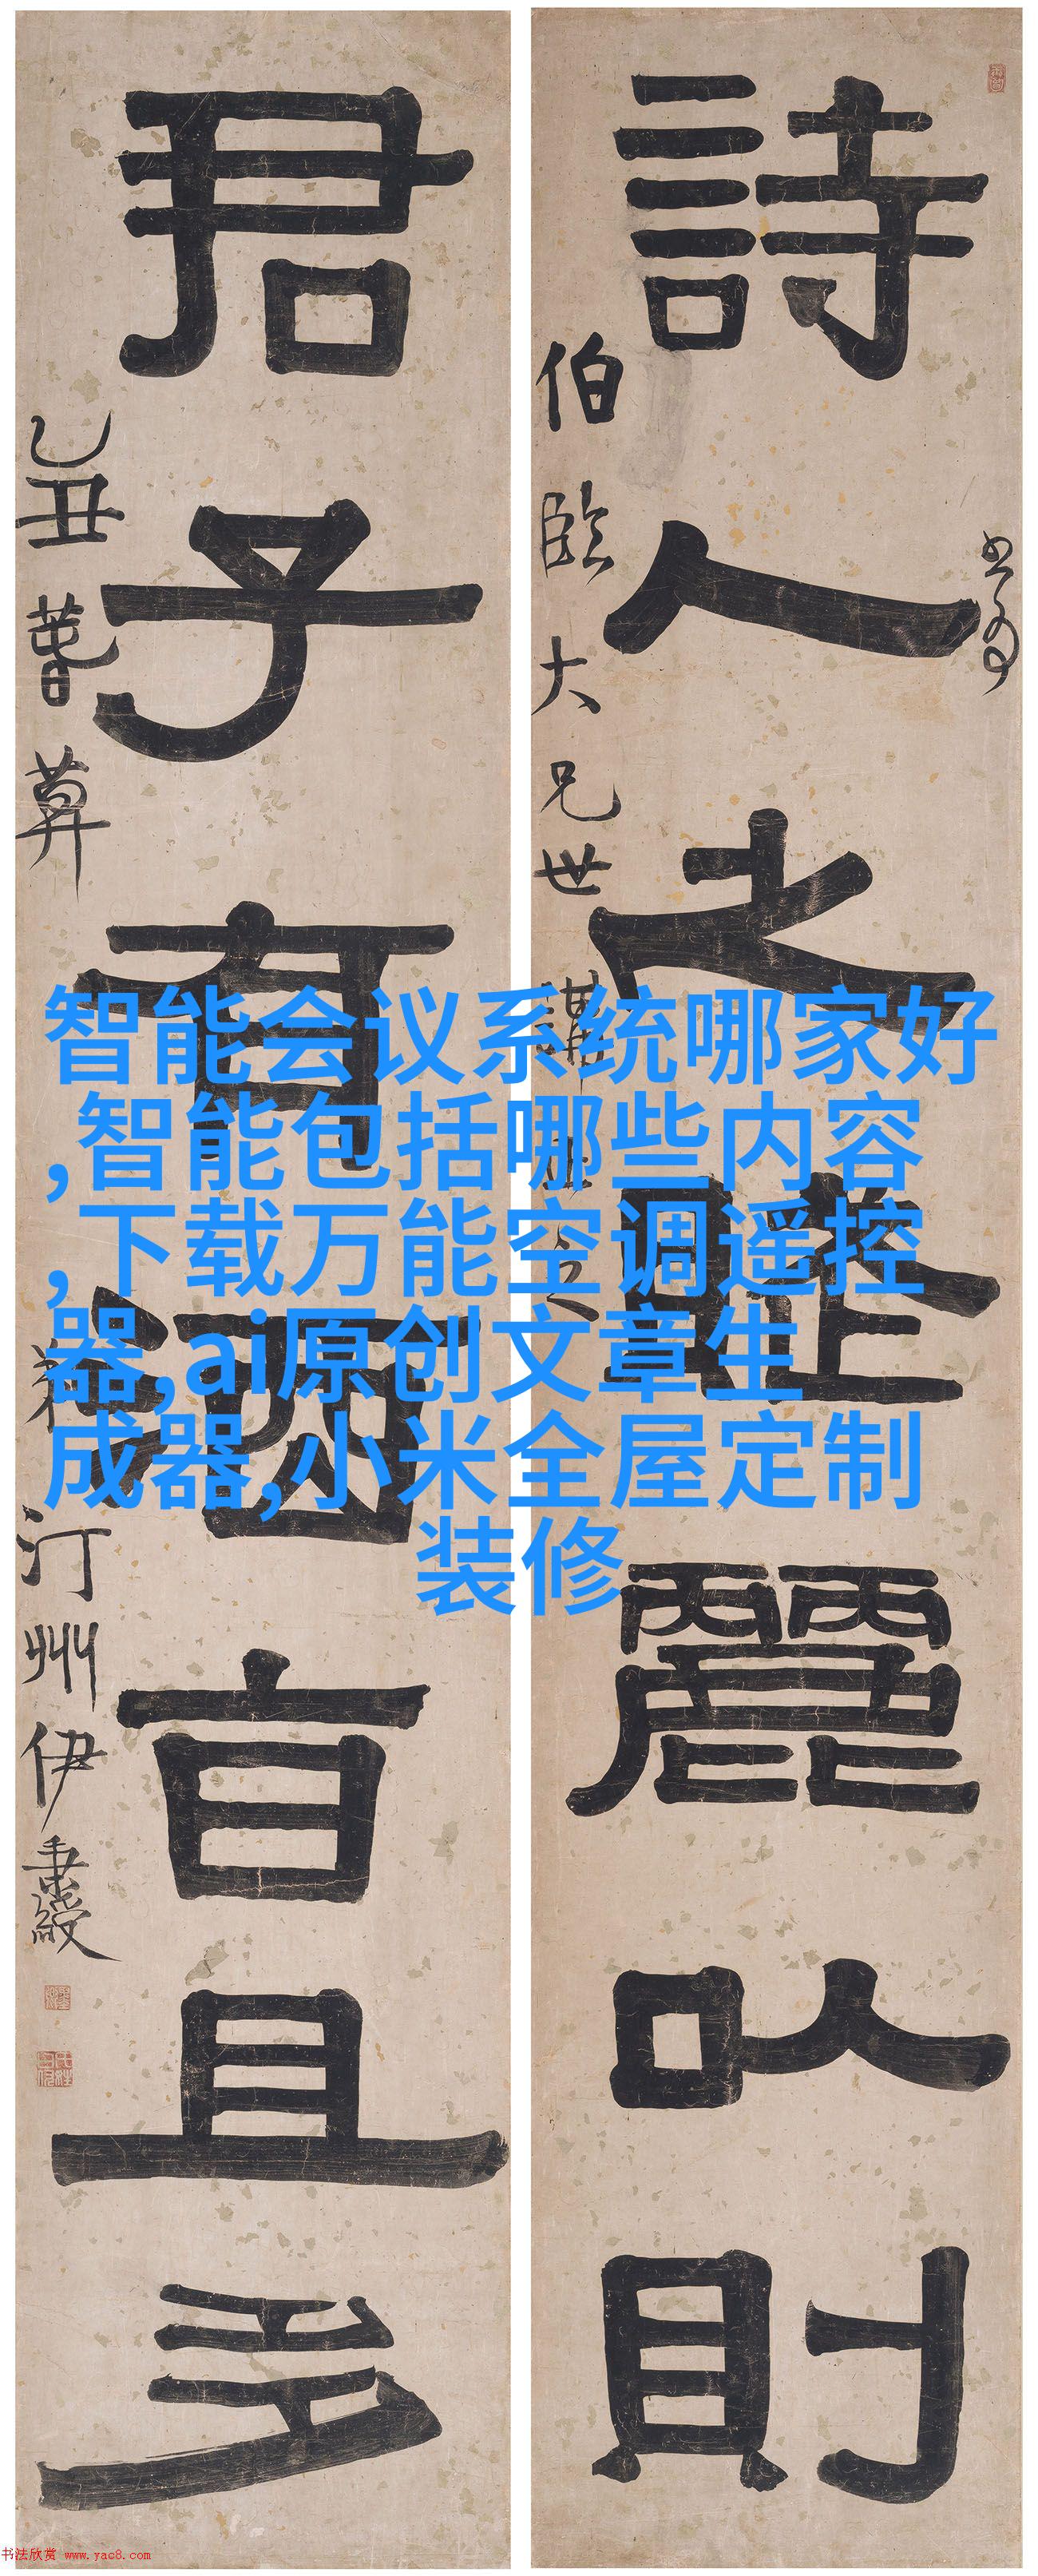 詩人之■麗以則
書為
伯臨大兄世講■正之
君子有酒旨且多
乙丑暮春算
汀州伊秉綬
智能会议系统哪家好
,智能包括哪些内容
,下载万能空调遥控
器,ai原创文章生
成器,小米全屋定制
装修
书法欣赏 www.yac8.com